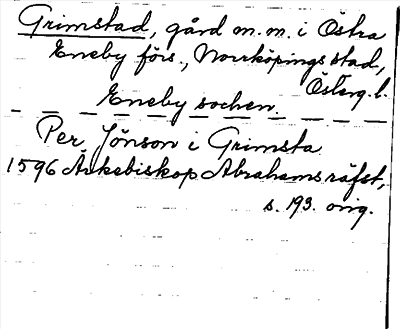 Grimstad, gård m.m. i Östra
Eneby förs., Norrköpings stad,
Österg. l.
Eneby socken.
Per Jönson i Grimsta
1596 Ärkebiskop Abrahams räfst,
s. 193. orig.